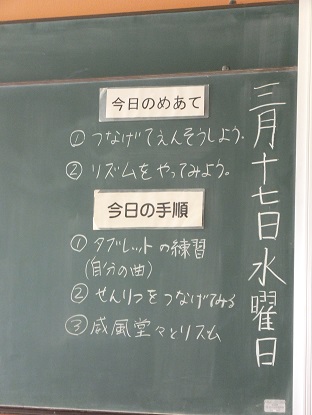 三月十七日水曜日
今日のめあて
①つなげてえんそうしよう。
②リズムをやってみよう。
今日の手順
①タブレットの練習
(自分の曲)
②せんりつをつなげてみる
③威風堂々とリズム